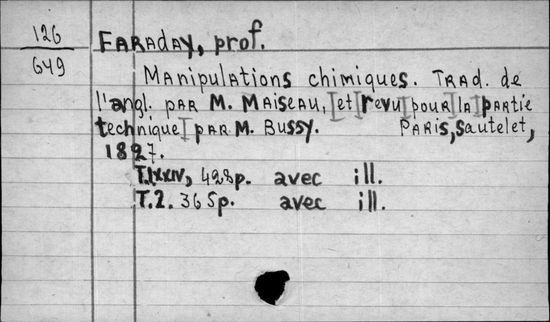 126
649
FARADAY, prof.
Manipulations chimiques. Trad. de
l'angl. PAR M. MAISEAU, [et] revu [pour] la [partie
technique] PAR M. Bussy. PARIS, Sautelet,
1827.
T.I.XXIV, 428p. avec ill.
T.2. 365p. avec ill.